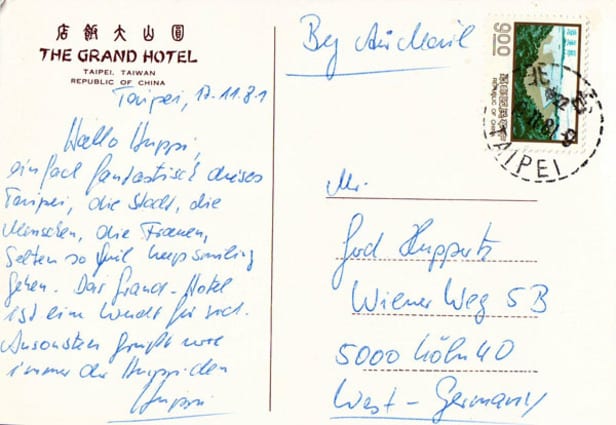 店飯大山圓
THE GRAND HOTEL
TAIPEI, TAIWAN
REPUBLIC OF CHINA
Taipei, 17.11.81
Hallo Huppi,
einfach fantastisch dieses
Taipei, die Stadt, die
Menschen, die Frauen,
Selten so viel keepsmiling
gesehen. Das Grand-Hotel
ist ein für sich.
Ansonsten grüßt wie
immer der Huppi den
Huppi
By Air Mail
900
REPUBLIC OF CHINA
TAIPEI
Mr.
Gerd Huppertz
Wiener Weg 5B
5000 Köln 40
West-Germany